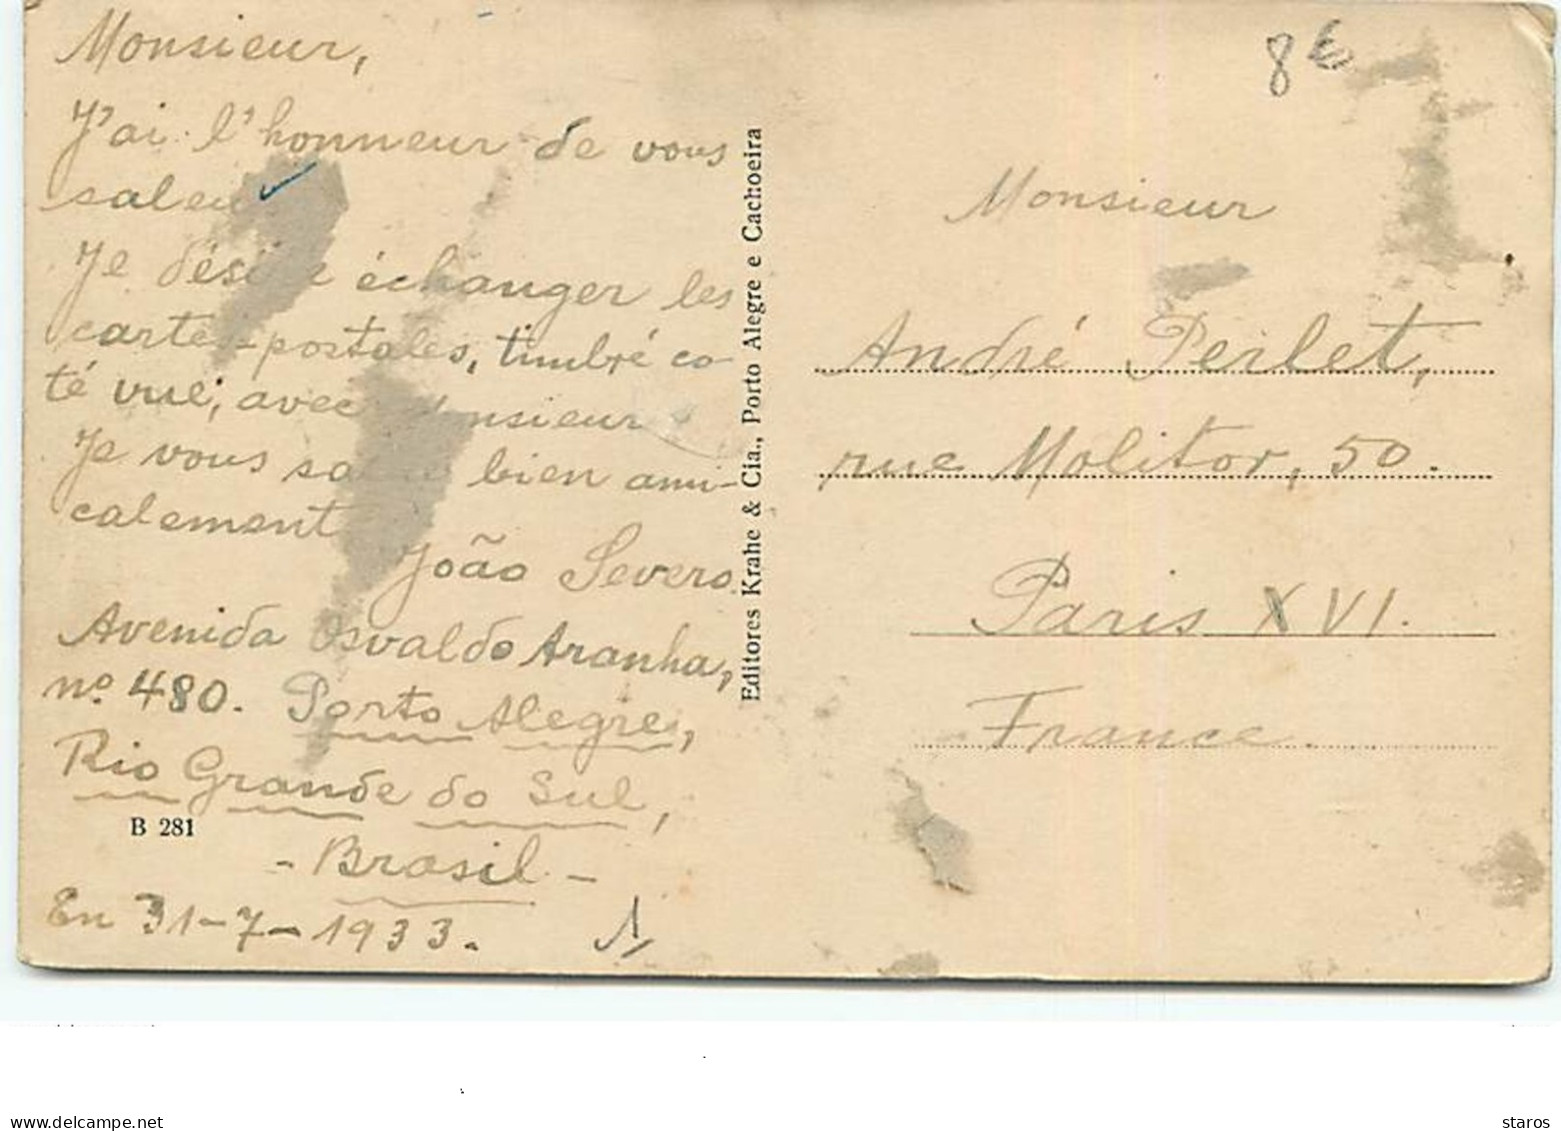 Monsieur,
J'ai l'honneur de vous
Je désire échanger les
cartes-postales, timbré co-
té vue, avec Monsieur
Je vous salue bien ami-
calement
João Severo.
Avenida Osvaldo Aranha,
nº 480. Porto Alegre,
Rio Grande do Sul,
B 281
- Brasil -
En 31-7-1933.
Editores Krahe & Cia., Porto Alegre e Cachoeira
8€
Monsieur
André Perlet,
rue Molitor, 50.
Paris XVI.
France.
www.delcampe.net
staros